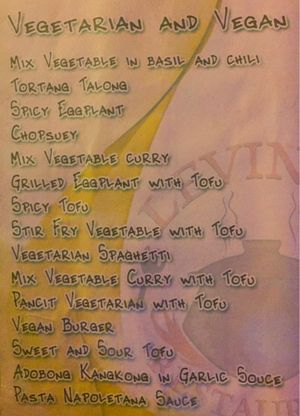 Vegetarian and Vegan
Mix Vegetable in basil and chili
Tortang Talong
Spicy Eggplant
Chopsuey
Mix Vegetable curry
Grilled Eggplant with Tofu
Spicy Tofu
Stir Fry Vegetable with Tofu
Vegetarian Spaghetti
Mix Vegetable Curry with Tofu
Pancit Vegetarian with Tofu
Vegan Burger
Sweet and Sour Tofu
Adobong Kangkong in Garlic Souce
Pasta Napoletana Sauce
LEVIN